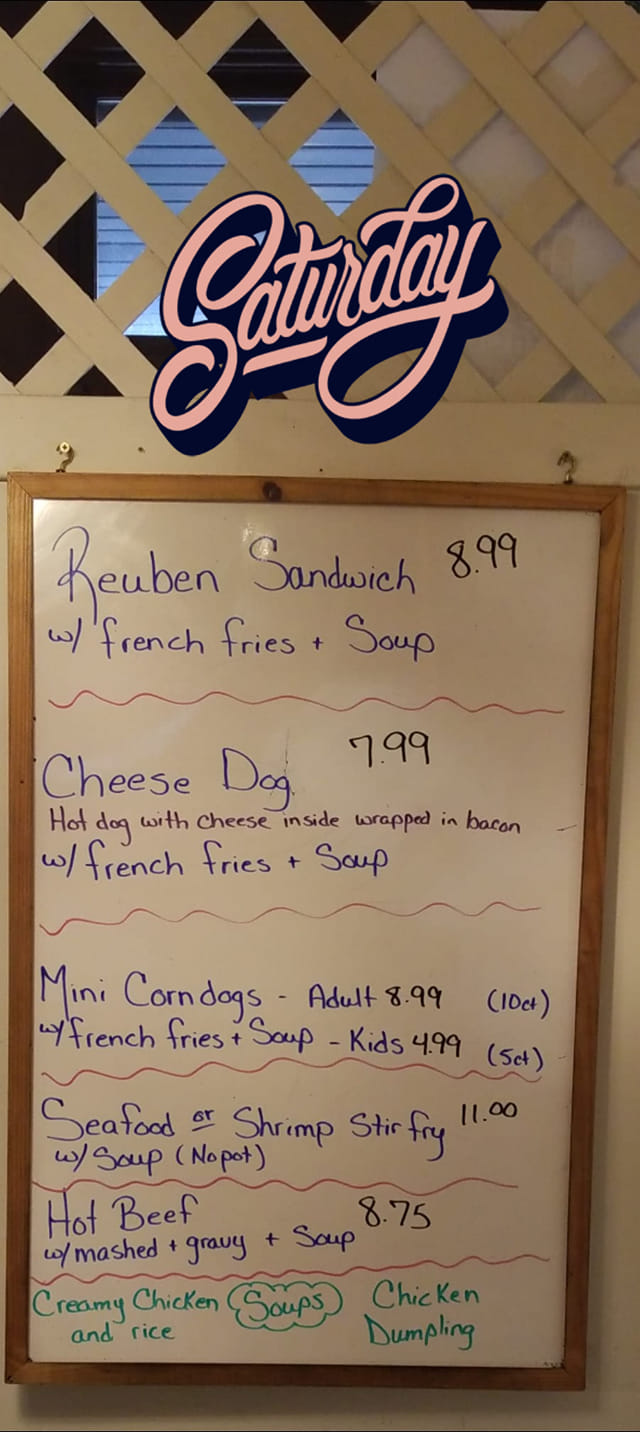 Saturday
Reuben Sandwich 8.99
w/ french fries + Soup
Cheese Dog 7.99
Hot dog with cheese inside wrapped in bacon
w/ french fries + Soup
Mini Corndogs - Adult 8.99 (10ct)
w/ french fries + Soup - Kids 4.99 (5ct)
Seafood or Shrimp Stir fry 11.00
w/ Soup (No pot)
Hot Beef 8.75
w/ mashed + gravy + Soup
Creamy Chicken and rice
Soups
Chicken Dumpling